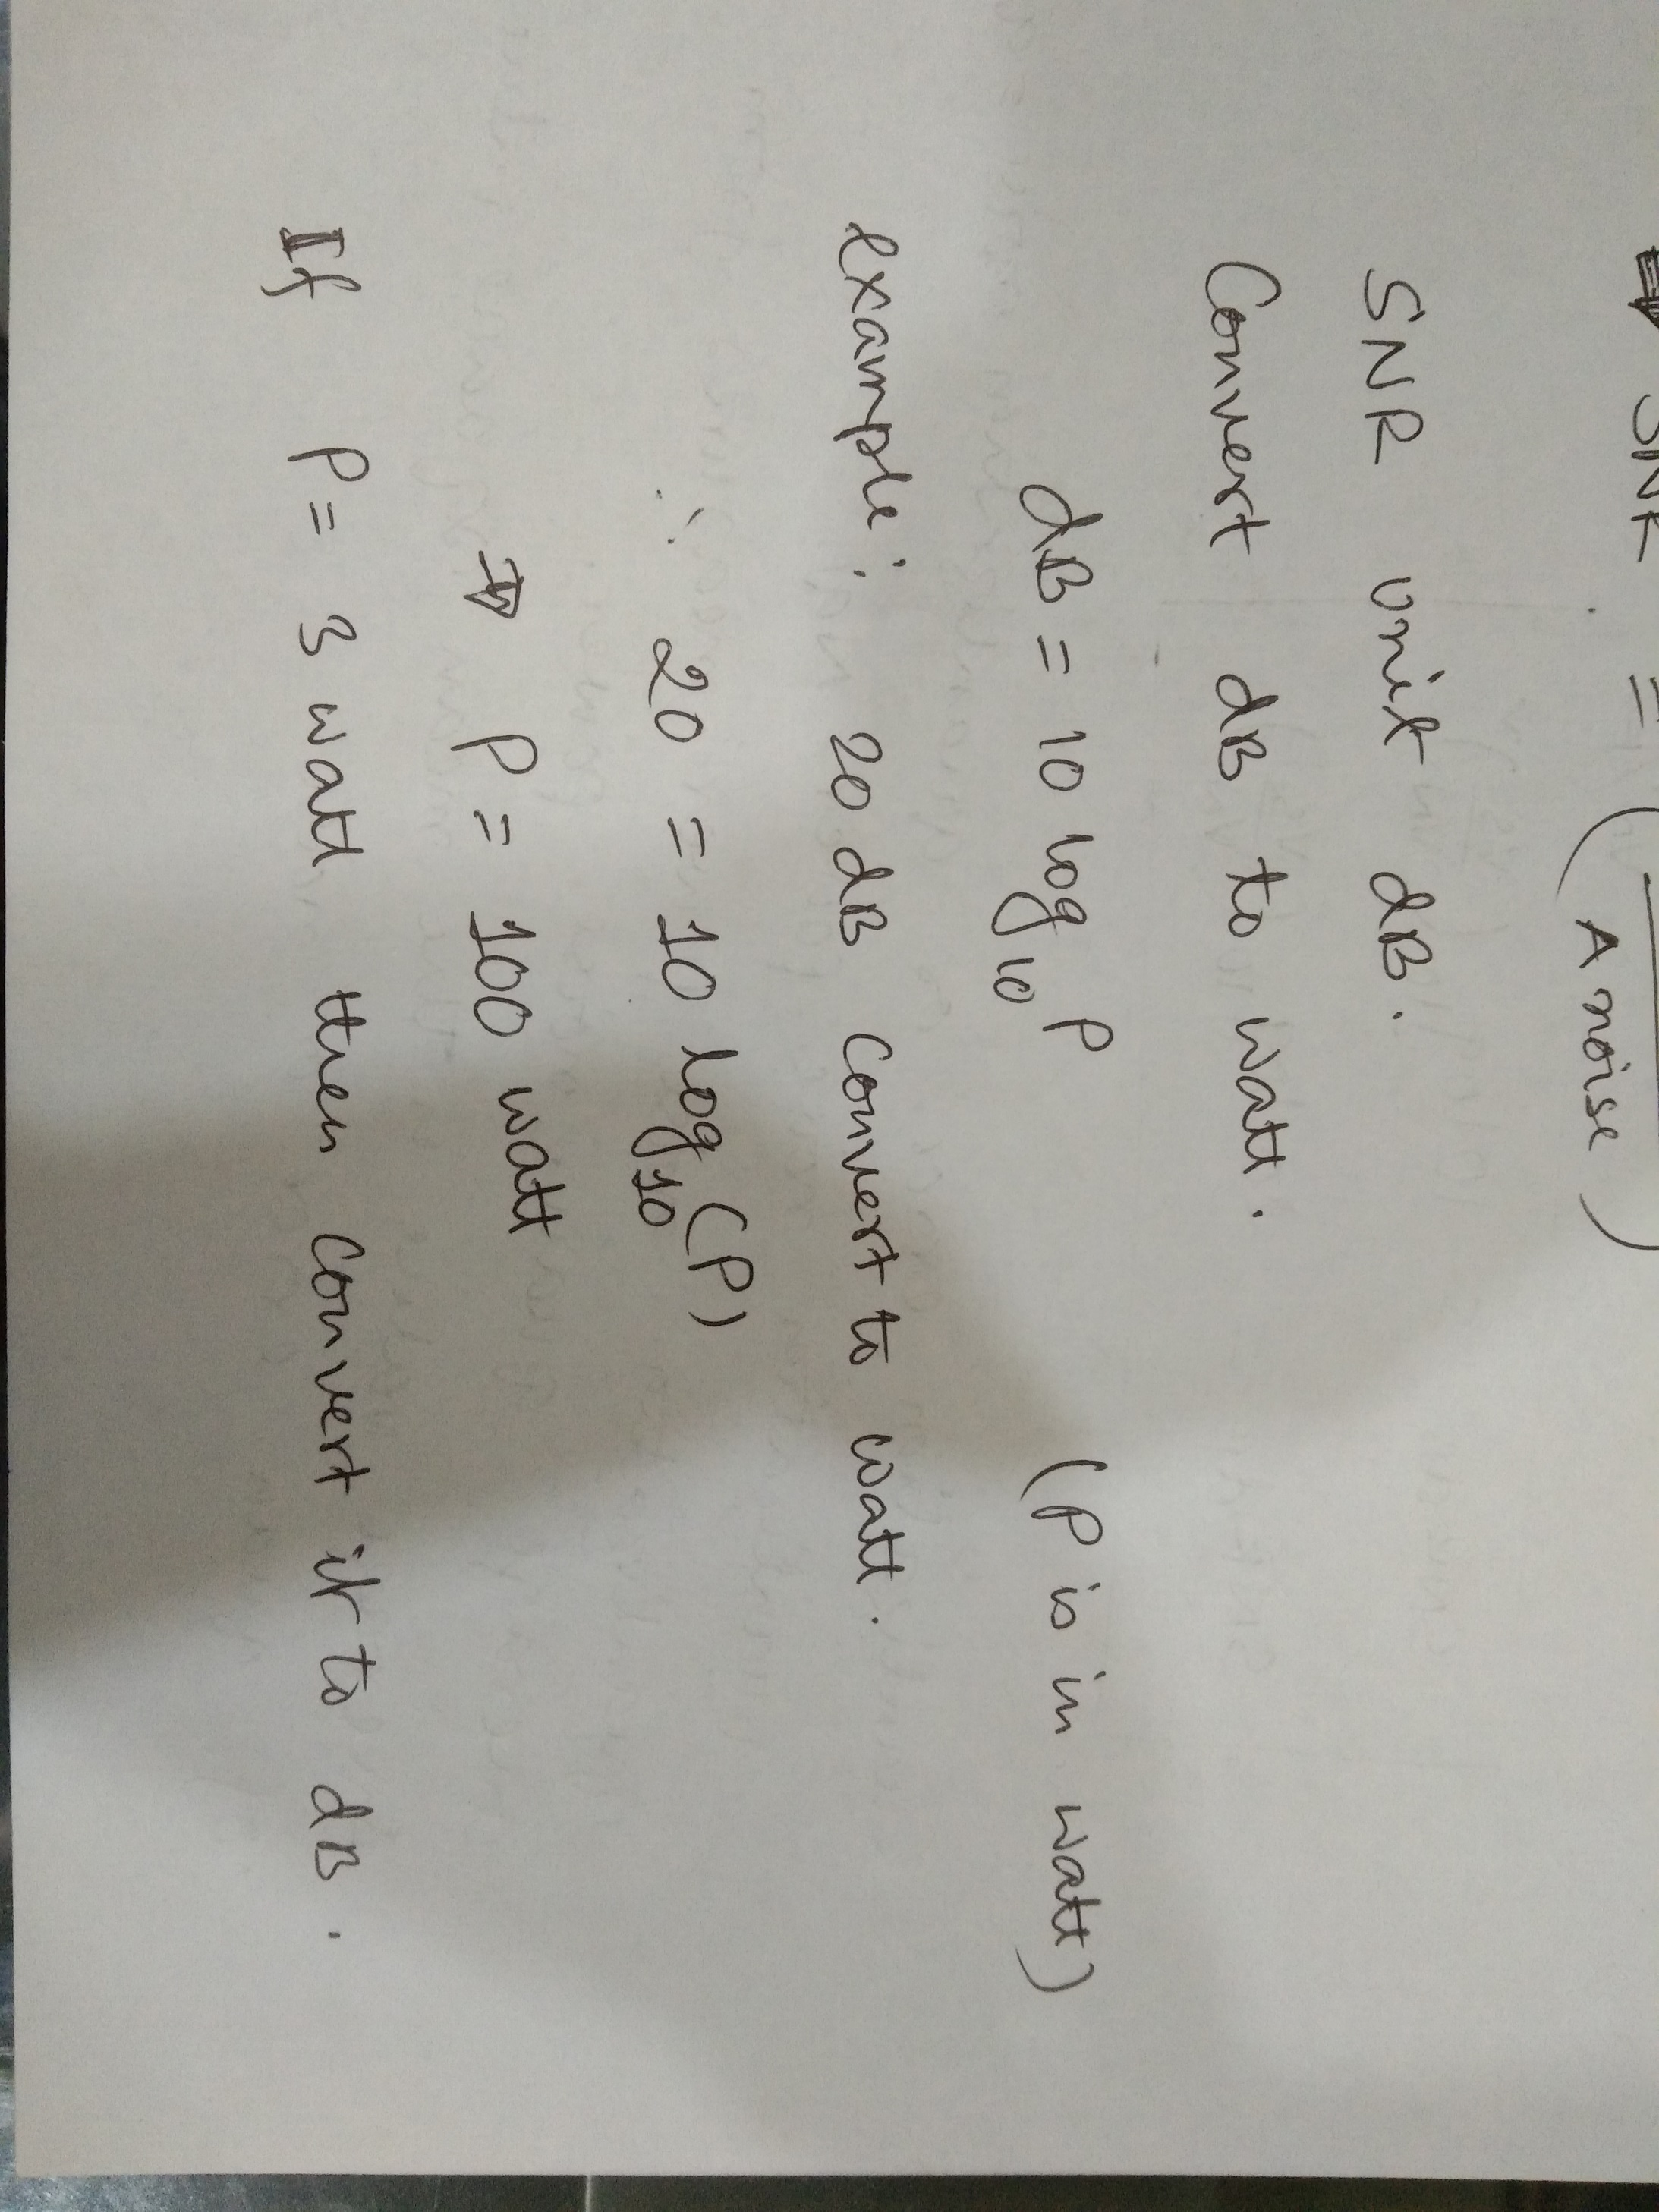 SNR =
( A noise )
SNR unit dB.
Convert dB to watt.
dB = 10 log10 P (P is in watt)
example: 20 dB convert to watt.
∴ 20 = 10 log10 (P)
⇒ P = 100 watt
If P = 3 watt then convert it to dB.